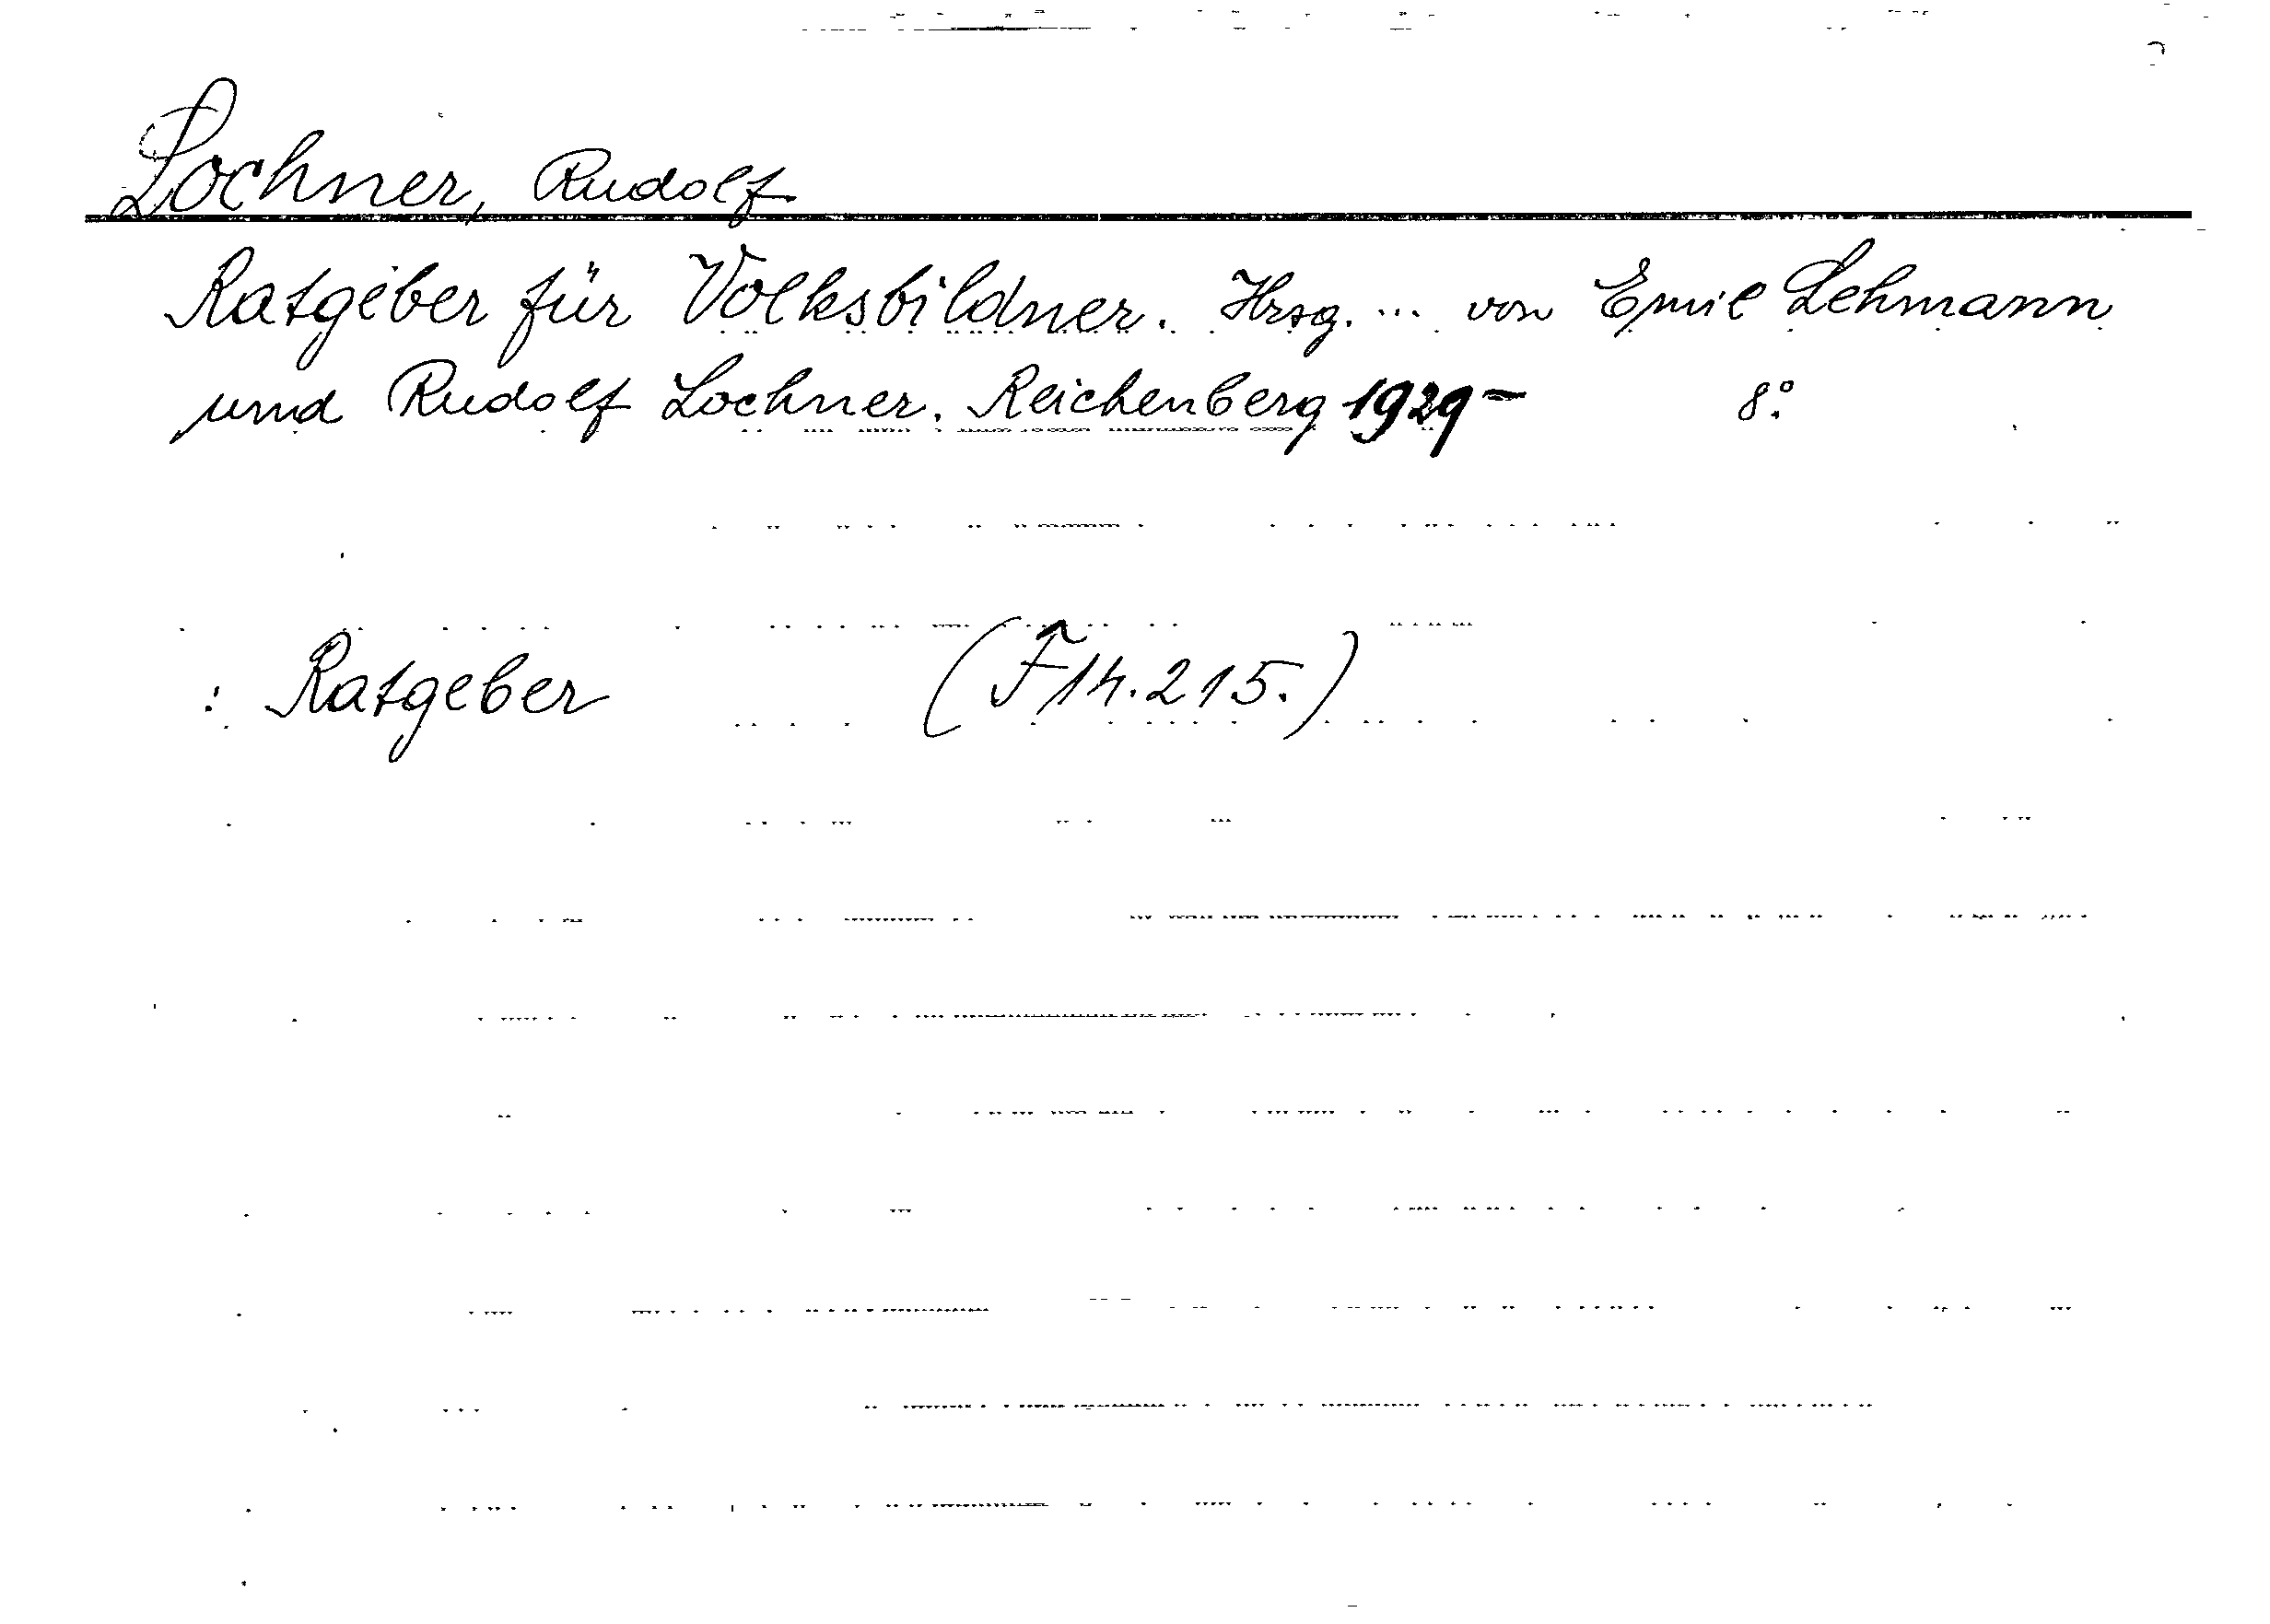 Lochner, Rudolf
Ratgeber für Volksbildner. Hrsg. ... von Emil Lehmann
und Rudolf Lochner. Reichenberg 1929- 8°.
: Ratgeber (F 14.215.)